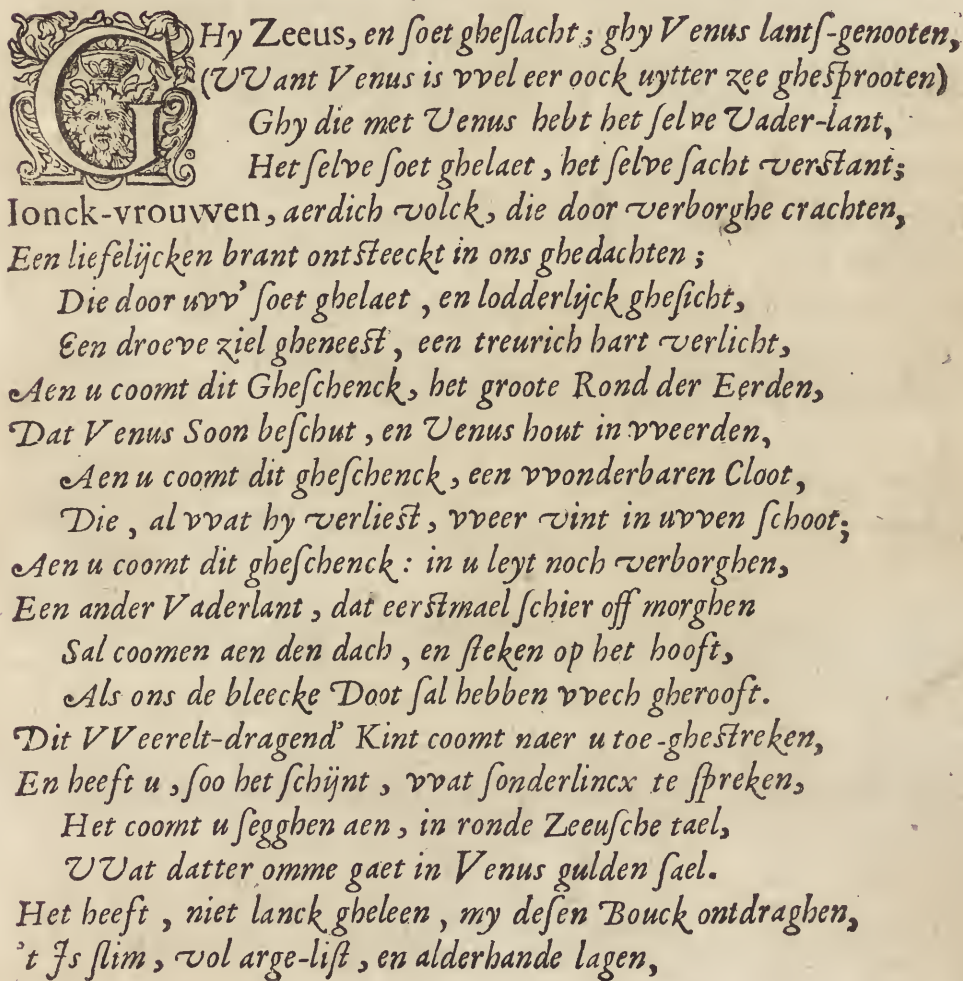 GHy Zeeus, en ſoet gheſlacht; ghy Venus lantſ-genooten,
(VVant Venus is vvel eer oock uytter zee gheſprooten)
Ghy die met Venus hebt het ſelve Vader-lant,
Het ſelve ſoet ghelaet, het ſelve ſacht verſtant;
Ionck-vrouwen, aerdich volck, die door verborghe crachten,
Een liefelijcken brant ontſteeckt in ons ghedachten;
Die door uvv' ſoet ghelaet, en lodderlijck gheſicht,
Een droeve ziel gheneeſt, een treurich hart verlicht,
Aen u coomt dit Gheſchenck, het groote Rond der Eerden,
Dat Venus Soon beſchut, en Venus hout in vveerden,
Aen u coomt dit gheſchenck, een vvonderbaren Cloot,
Die, al vvat hy verlieſt, vveer vint in uvven ſchoot;
Aen u coomt dit gheſchenck: in u leyt noch verborghen,
Een ander Vaderlant, dat eerſtmael ſchier off morghen
Sal coomen aen den dach, en ſteken op het hooft,
Als ons de bleecke Doot ſal hebben vvech gherooft.
Dit VVeerelt-dragend' Kint coomt naer u toe-gheſtreken,
En heeft u, ſoo het ſchijnt, vvat ſonderlincx te ſpreken,
Het coomt u ſegghen aen, in ronde Zeeuſche tael,
VVat datter omme gaet in Venus gulden ſael.
Het heeft, niet lanck gheleen, my deſen Bouck ontdraghen,
't Is ſlim, vol arge-liſt, en alderhande lagen,